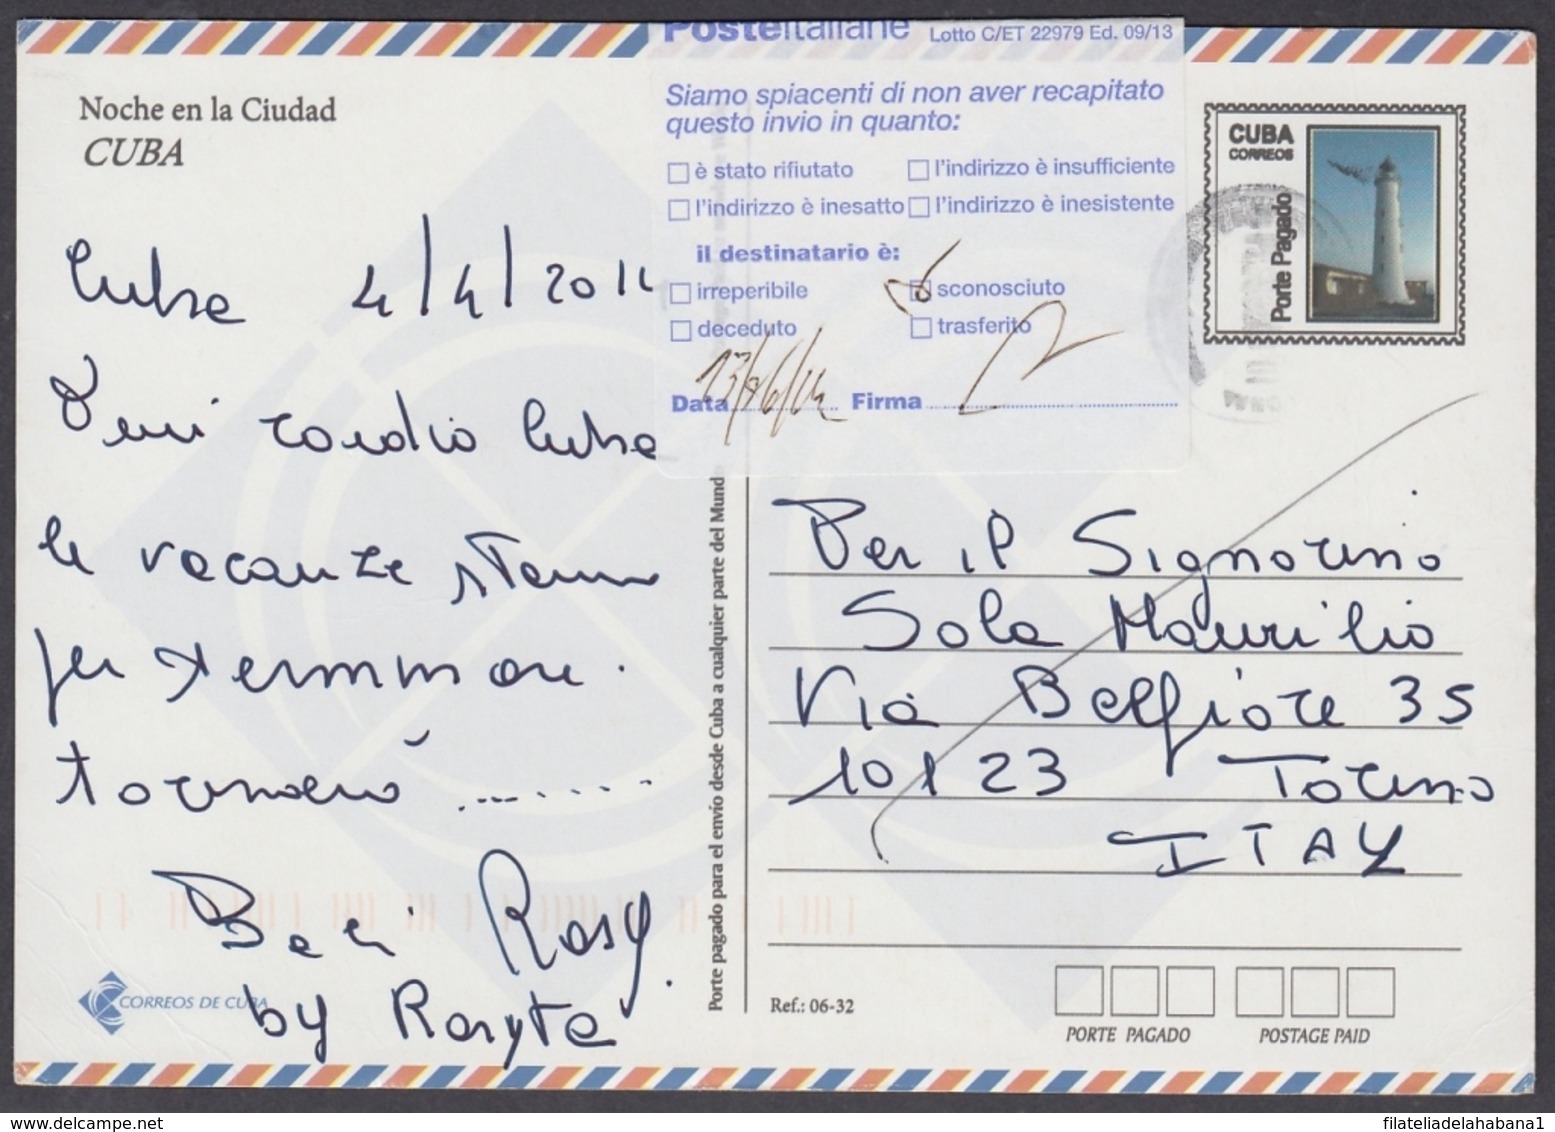 Posteitaliane Lotto C/ET 22979 Ed. 09/13
Siamo spiacenti di non aver recapitato
questo invio in quanto:
è stato rifiutato l'indirizzo è insufficiente
l'indirizzo è inesatto l'indirizzo è inesistente
il destinatario è:
irreperibile sconosciuto
deceduto trasferito
Data Firma
Noche en la Ciudad
CUBA
Cuba 4/4/201
cuba
le vacanze stanno
per terminare.
tornerò ..........
Baci Rosy
by Rosyta
CORREOS DE CUBA
Porte pagado para el envío desde Cuba a cualquier parte del Mundo
CUBA
CORREOS
Porte Pagado
Per il Signorino
Sola Maurilio
Via Belfiore 35
10123 Torino
ITALY
Ref.: 06-32
PORTE PAGADO POSTAGE PAID
filateliadelahabana1